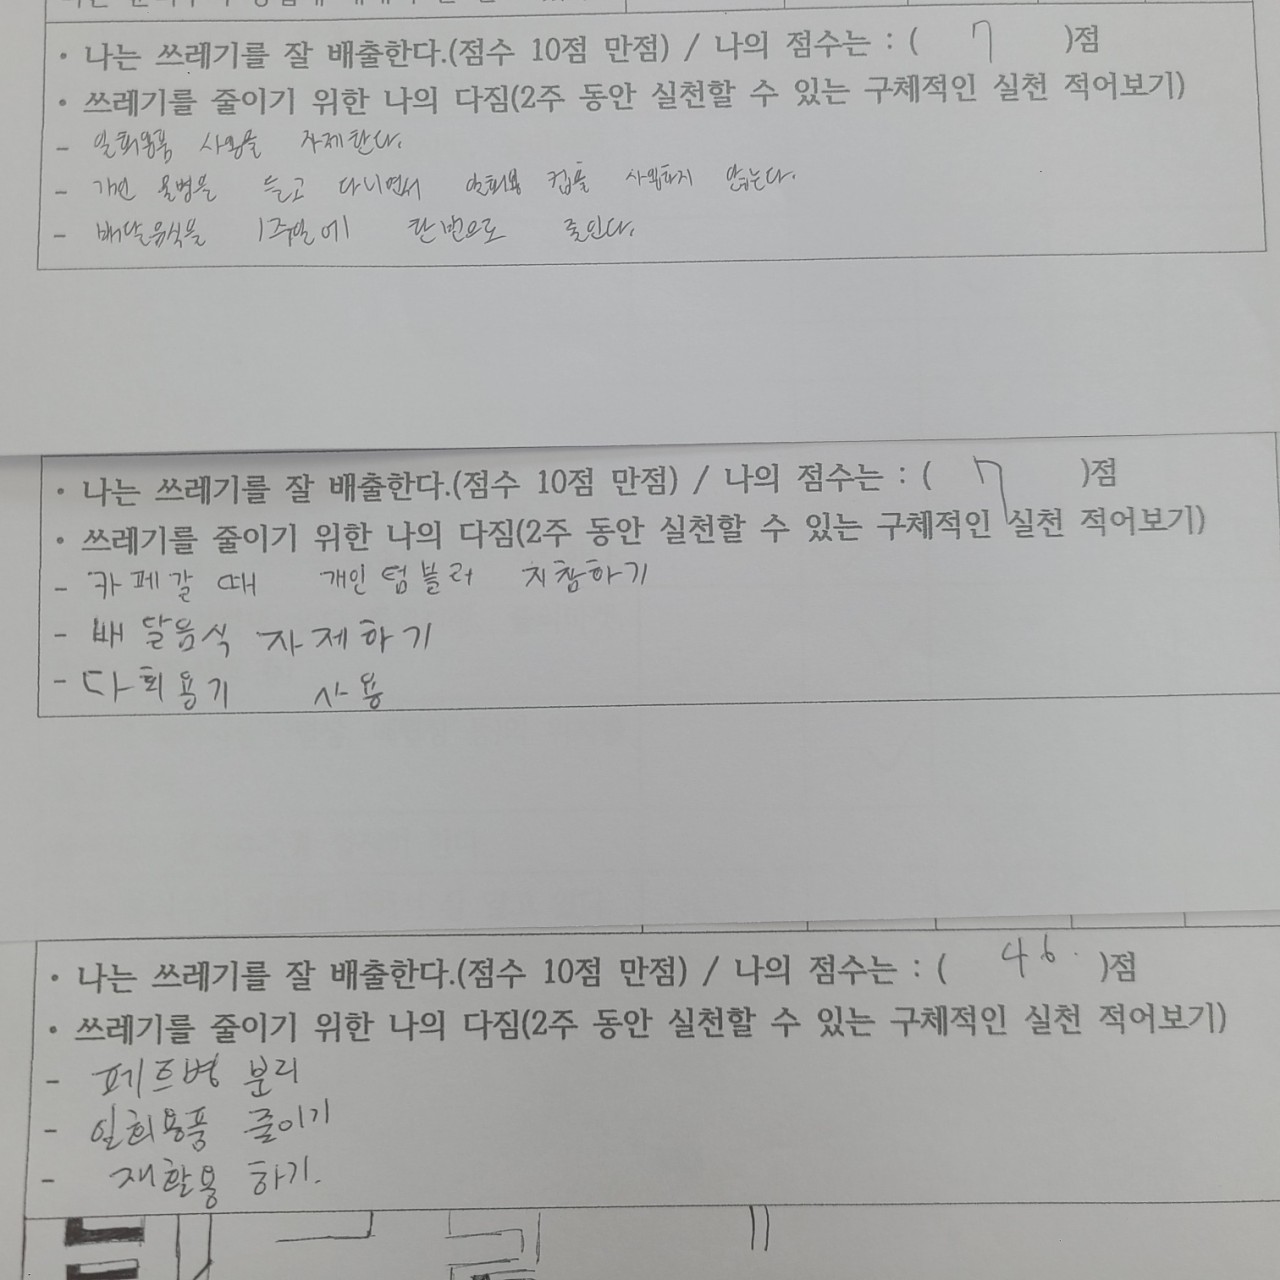 • 나는 쓰레기를 잘 배출한다.(점수 10점 만점) / 나의 점수는 : ( 7 )점
• 쓰레기를 줄이기 위한 나의 다짐(2주 동안 실천할 수 있는 구체적인 실천 적어보기)
- 일회용품 사용을 자제한다.
- 개인 물병을 들고 다니면서 일회용 컵을 사용하지 않는다.
- 배달음식을 1주일에 한번으로 줄인다.
• 나는 쓰레기를 잘 배출한다.(점수 10점 만점) / 나의 점수는 : ( 7 )점
• 쓰레기를 줄이기 위한 나의 다짐(2주 동안 실천할 수 있는 구체적인 실천 적어보기)
- 카페갈 때 개인텀블러 지참하기
- 배달음식 자제하기
- 다회용기 사용
• 나는 쓰레기를 잘 배출한다.(점수 10점 만점) / 나의 점수는 : ( 46. )점
• 쓰레기를 줄이기 위한 나의 다짐(2주 동안 실천할 수 있는 구체적인 실천 적어보기)
- 페트병 분리
- 일회용품 줄이기
- 재활용 하기.